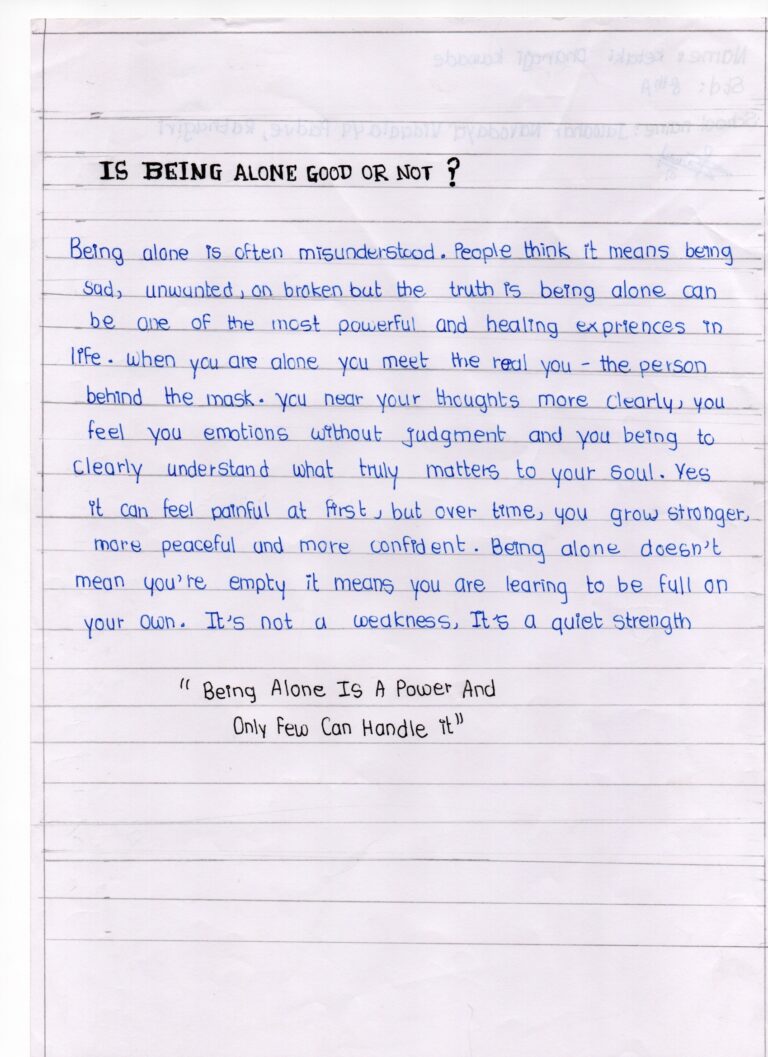 IS BEING ALONE GOOD OR NOT ?
Being alone is often misunderstood. People think it means being
sad, unwanted, on broken but the truth is being alone can
be one of the most powerful and healing expriences in
life. when you are alone you meet the real you - the person
behind the mask. you near your thoughts more clearly, you
feel you emotions without judgment and you being to
clearly understand what truly matters to your soul. Yes
it can feel painful at first, but over time, you grow stronger,
more peaceful and more confident. Being alone doesn't
mean you're empty it means you are learing to be full on
your own. It's not a weakness, It's a quiet strength
" Being Alone Is A Power And
Only Few Can Handle it"